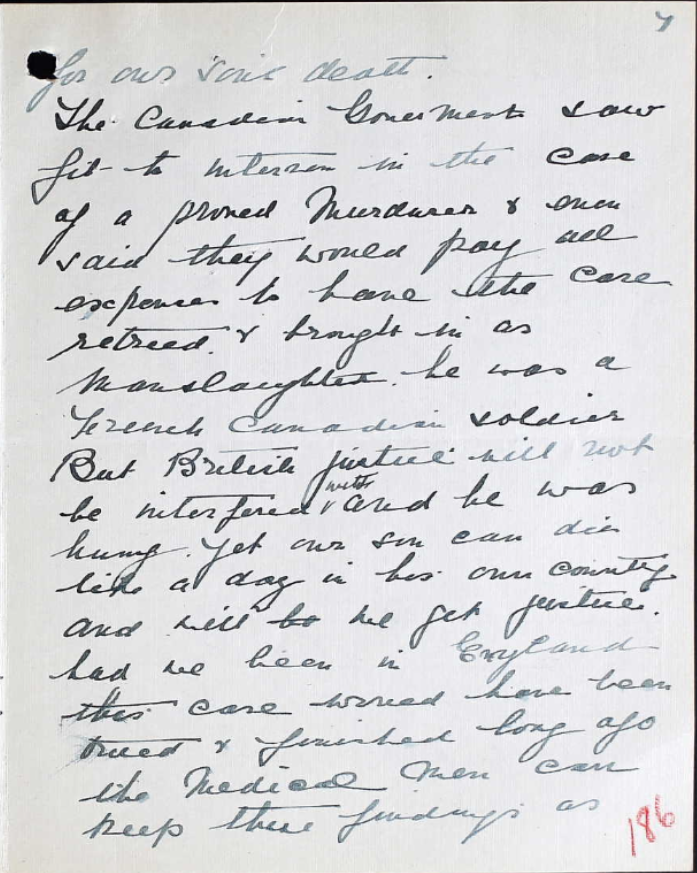 7
for our son's death.
The Canadian Government saw
fit to interven in the case
of a proved Murdurer & even
said they would pay all
expenses to have the case
retried & brought in as
Manslaughter. he was a
French Canadian soldier
But British justice will not
be interfered with and he was
hung. Yet our son can die
like a dog in his own country
and will we get justice.
had we been in England
this case would have been
tried & finished long ago
the Medical Men can
keep there findings as
186